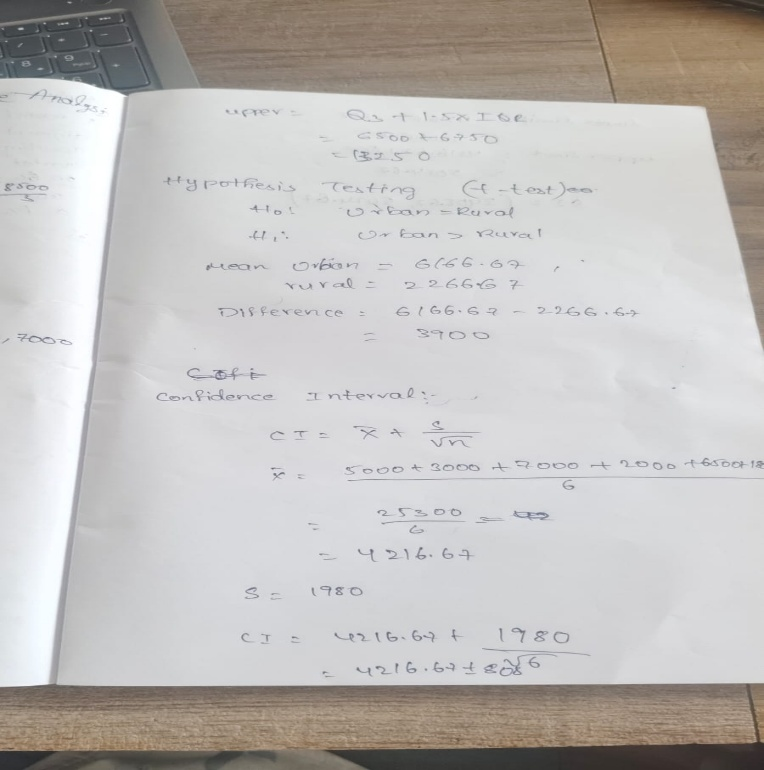 e Analysi
8500
3
, 7000
upper = Q3 + 1.5x IQR
= 6500 + 6750
= 13250
Hypothesis Testing (t-test)
H0: Urban = Rural
H1: Urban > Rural
Mean Urban = 6166.67 ,
rural = 2266.67
Difference = 6166.67 - 2266.67
= 3900
Confidence Interval:-
CI = x̄ + s/√n
x̄ = 5000 + 3000 + 7000 + 2000 + 6500 + 18
6
= 25300/6 =
= 4216.67
S = 1980
CI = 4216.67 + 1980/√6
= 4216.67 ±